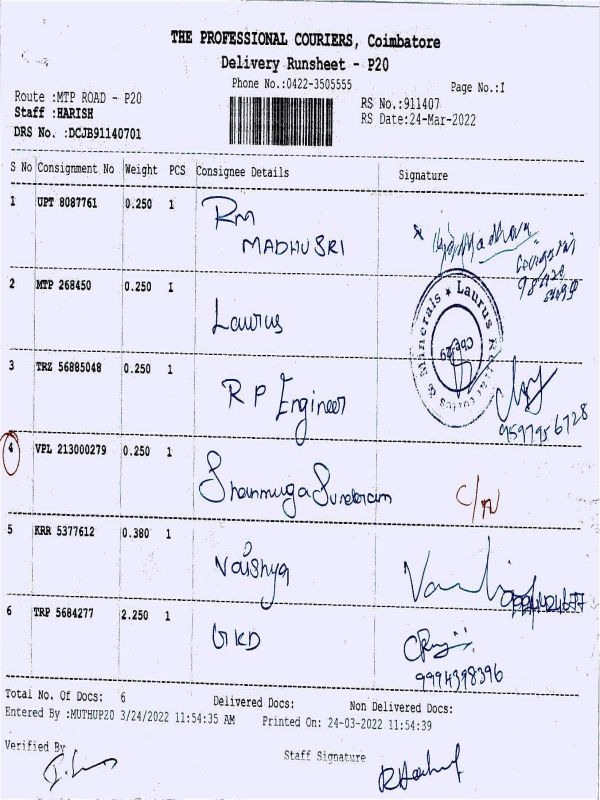 THE PROFESSIONAL COURIERS, Coimbatore
Delivery Runsheet - P20
Phone No.:0422-3505555
Page No.:I
Route :MTP ROAD - P20
RS No.:911407
Staff :HARISH
RS Date:24-Mar-2022
DRS No. :DCJB91140701
S No Consignment No Weight PCS Consignee Details Signature
1 UPT 8087761 0.250 1 RM
MADHUSRI
2 MTP 268450 0.250 I Laurus
Minerals * Laurus
Cbe-29
3 TRZ 56885048 0.250 1 RP Engineer
9597956728
4 VPL 213000279 0.250 1 Shanmuga Sundaram
5 KRR 5377612 0.380 1 Vaishya
6 TRP 5684277 2.250 1 GKD
9994398396
Total No. Of Docs: 6 Delivered Docs: Non Delivered Docs:
Entered By :MUTHUP20 3/24/2022 11:54:35 AM Printed On: 24-03-2022 11:54:39
Verified By
Staff Signature